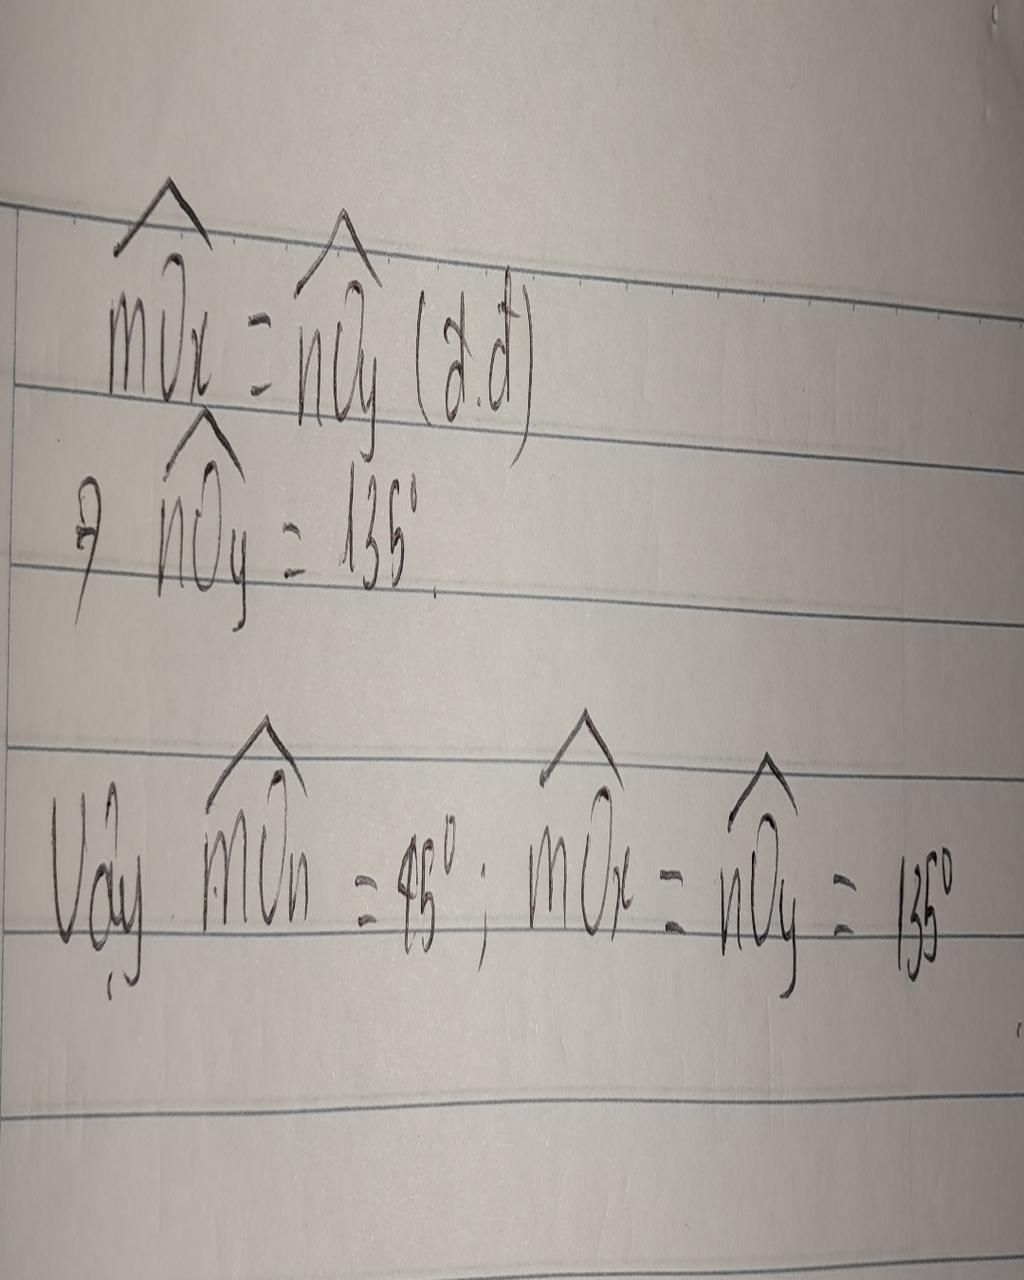 $\widehat{mOx} = \widehat{nOy}$ (đ.đ)
⇒ $\widehat{nOy} = 135^\circ$
Vậy $\widehat{mOn} = 45^\circ$ ; $\widehat{mOx} = \widehat{nOy} = 135^0$